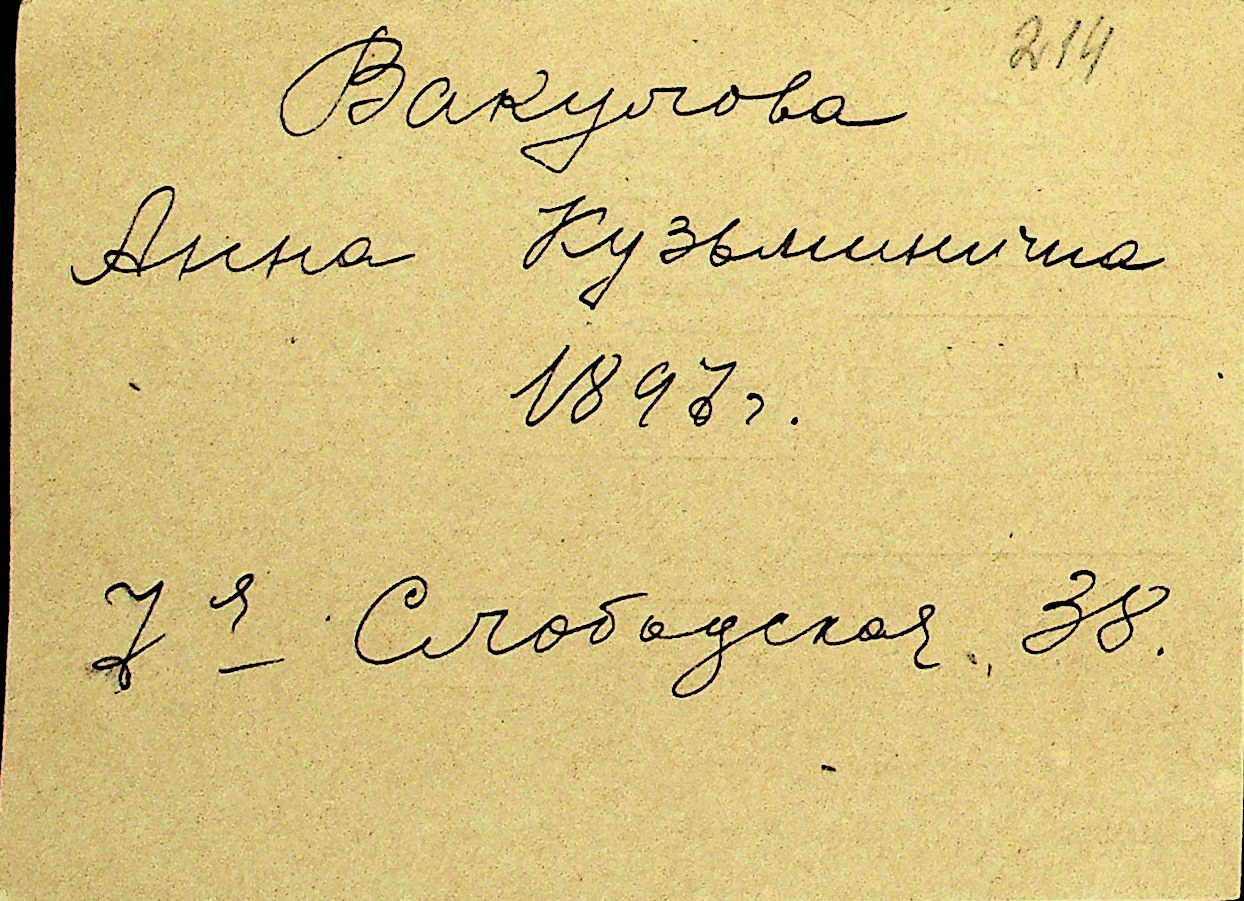 214
Вакулова
Анна Кузьминична
1897г.
7я Слободская, 38.